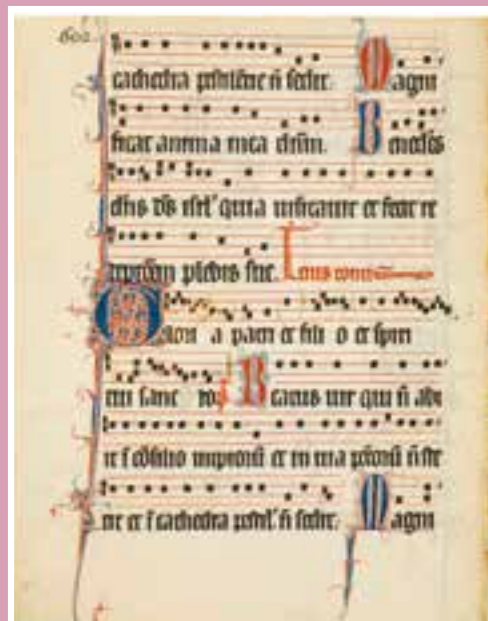 602
cathedra pestilēcie n̄ sedit. Magni
ficat anima mea dn̄m. Bened
dn̄s ds̄ isrl' quia visitauit et fecit re
plebis sue.
Glori a patri et fili o et spiri
tui sanc to. Beatus vir qui n̄ abi
it ī cōsilio impiorū et in via n̄ ste
tit et ī cathedra pestil' n̄ sedit. Magni